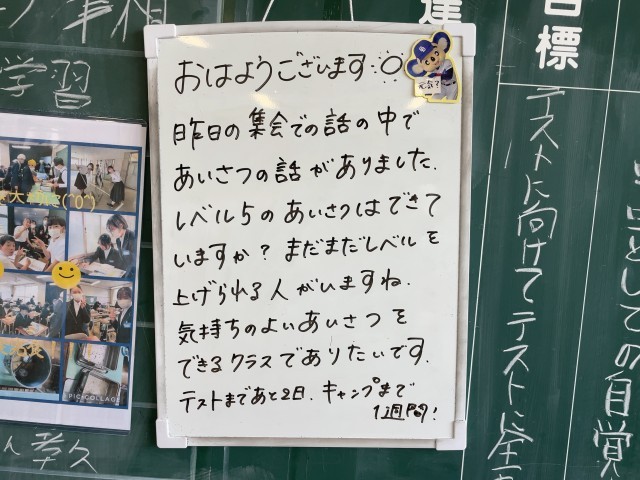 おはようございます
元気?
昨日の集会での話の中で
あいさつの話がありました.
レベル5のあいさつはできて
いますか?まだまだレベルを
上げられる人がいますね.
気持ちのよいあいさつを
できるクラスでありたいです.
テストまであと2日.キャンプまで
1週間!
目標
テストに向けてテストに
としての自覚
学習
PIC COLLAGE